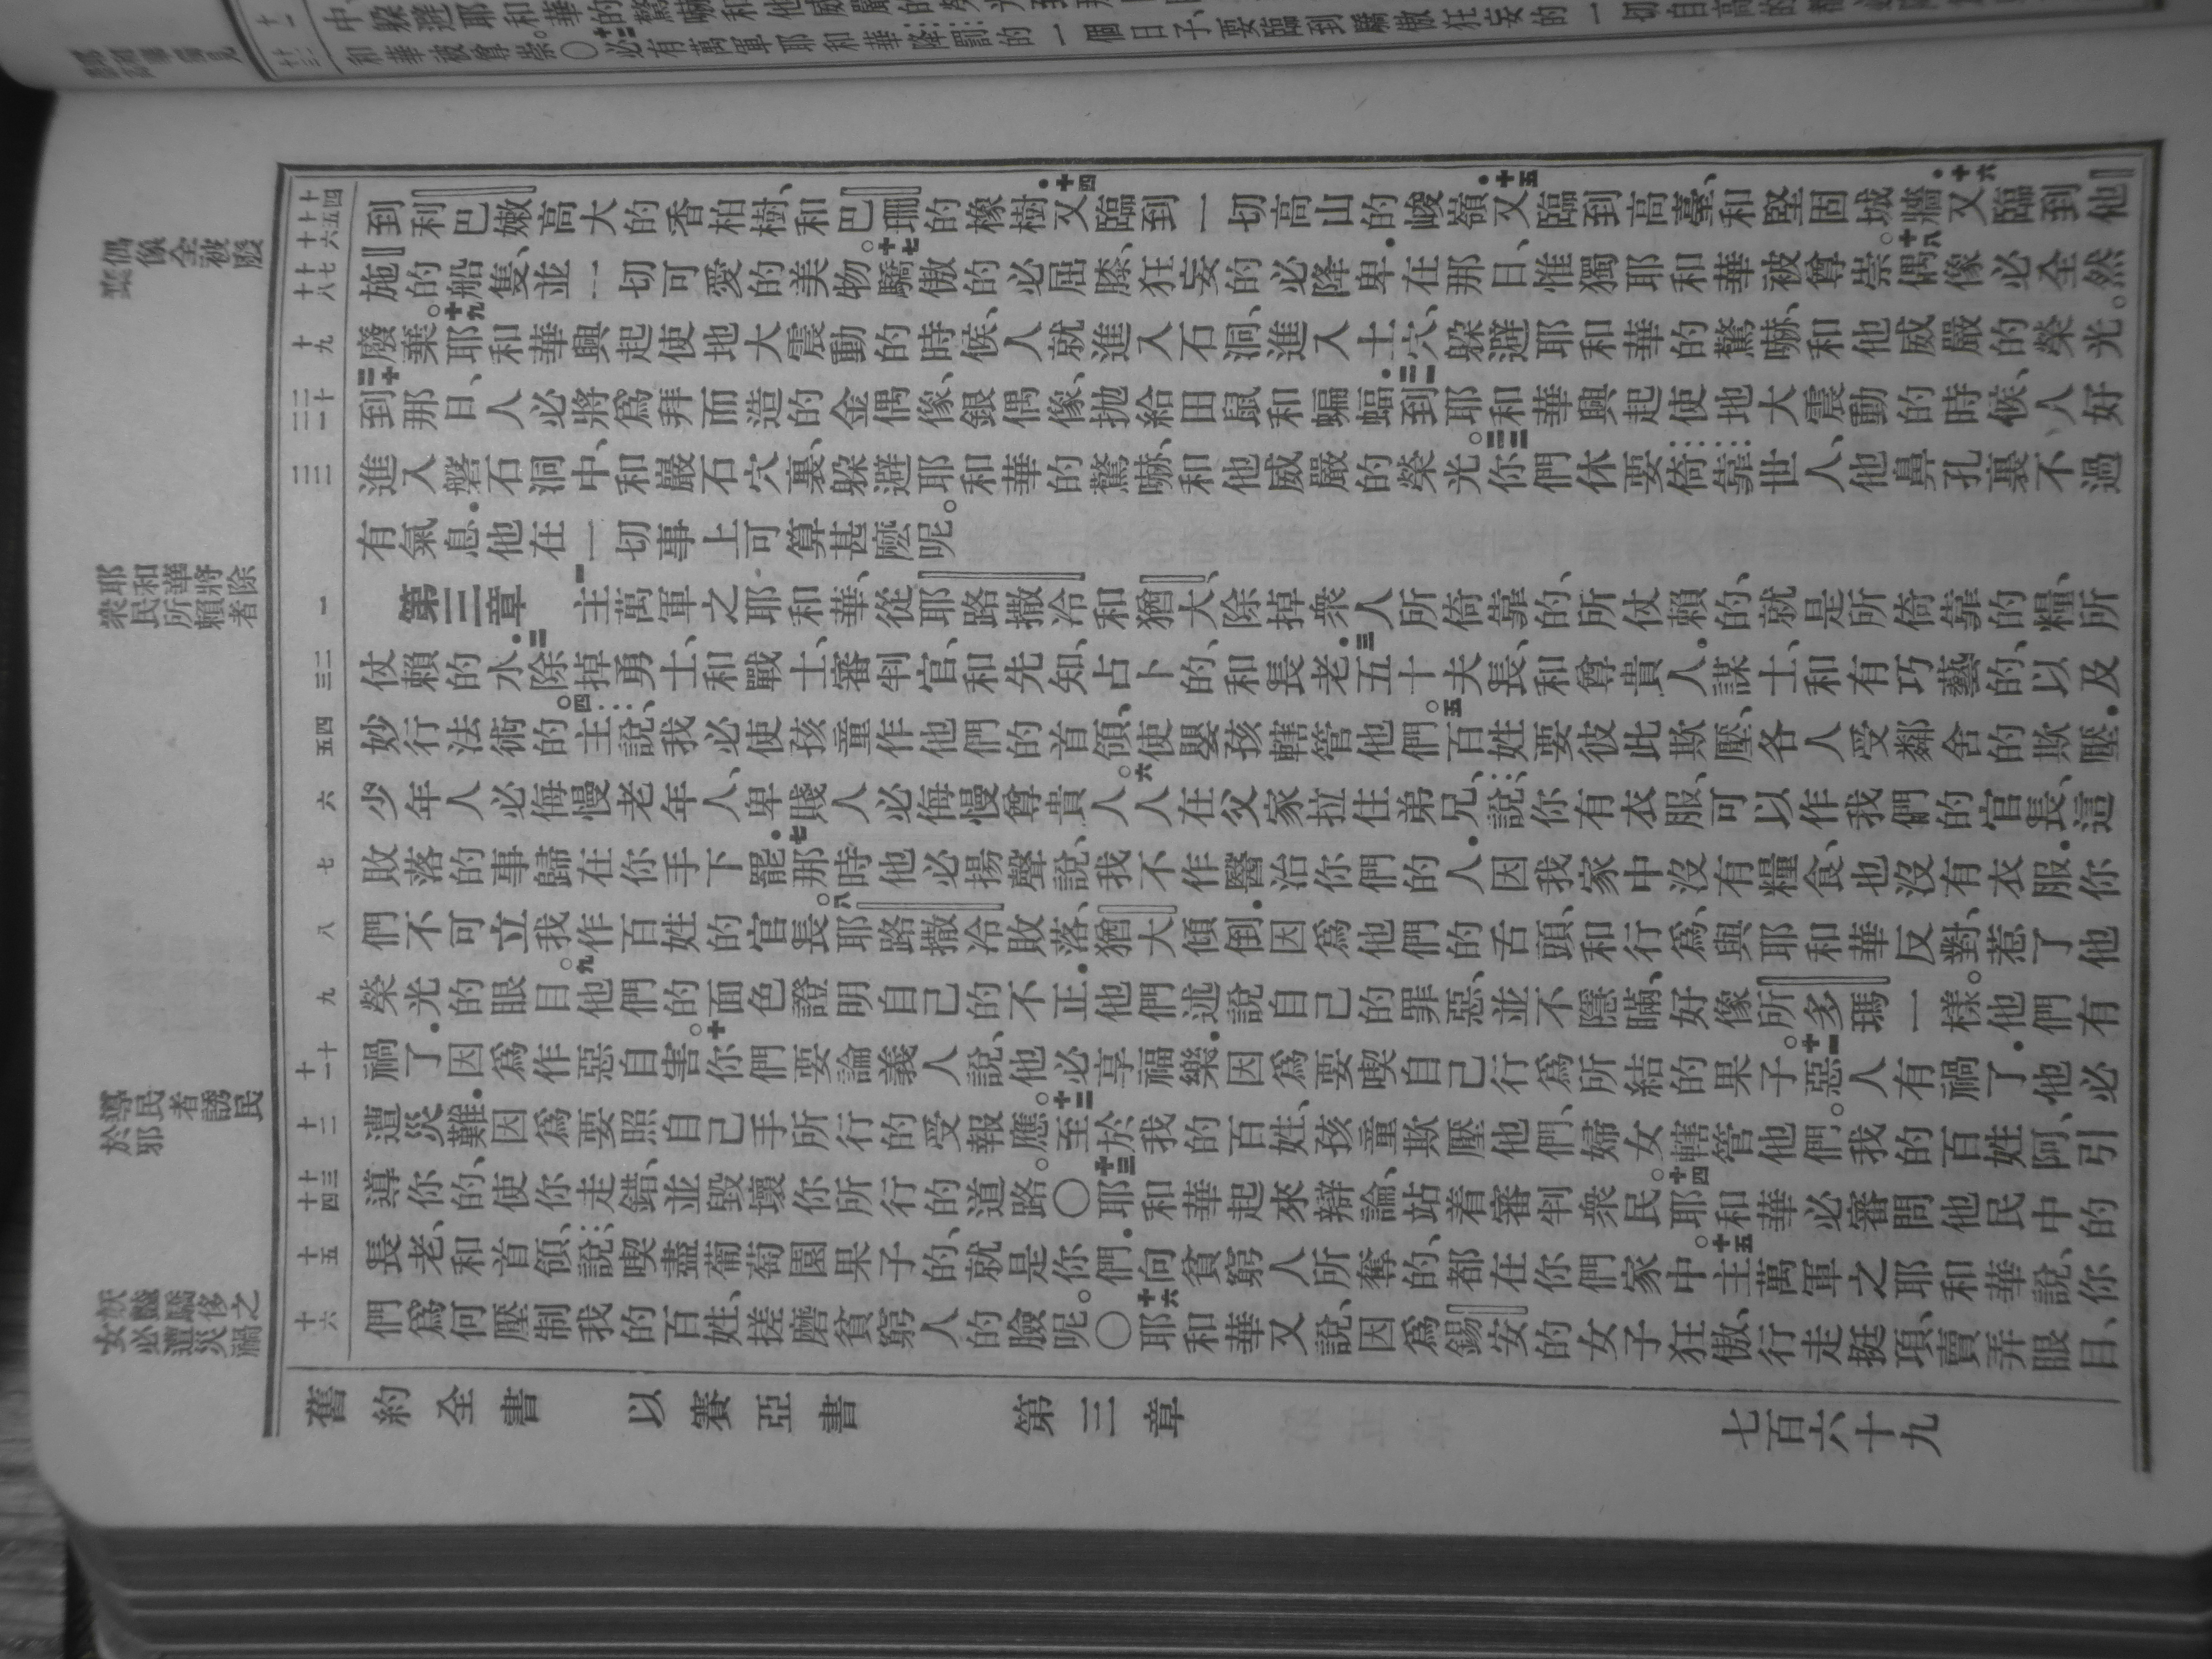 和華被尊崇○必有萬軍耶和華降罰的一個日子、要臨到驕傲狂妄的一切自高的
偶像全被廢
耶和華將除
衆民所賴者
導民者誘民
於邪
妖豔驕侈之
女必遭災禍
十四
十五
十六
到利巴嫩高大的香柏樹、和巴珊的橡樹．十四又臨到一切高山的峻嶺．十五又臨到高臺、和堅固城牆．十六又臨到他
十七
十八
施的船隻、並一切可愛的美物。十七驕傲的必屈膝、狂妄的必降卑．在那日、惟獨耶和華被尊崇。十八偶像必全然
十九
廢棄。十九耶和華興起使地大震動的時候、人就進入石洞、進入土穴、躲避耶和華的驚嚇、和他威嚴的榮光。
二十
二一
二十到那日、人必將爲拜而造的金偶像、銀偶像、拋給田鼠和蝙蝠．二一到耶和華興起使地大震動的時候、人好
二二
進入磐石洞中、和巖石穴裏、躲避耶和華的驚嚇、和他威嚴的榮光。二二你們休要倚靠世人、他鼻孔裏不過
有氣息．他在一切事上可算甚麼呢。
一
第三章 一主萬軍之耶和華、從耶路撒冷和猶大、除掉衆人所倚靠的、所仗賴的、就是所倚靠的糧、所
二
三
仗賴的水．二除掉勇士、和戰士、審判官、和先知、占卜的、和長老．三五十夫長、和尊貴人．謀士、和有巧藝的、以及
四
五
妙行法術的。四主說、我必使孩童作他們的首領、使嬰孩轄管他們。五百姓要彼此欺壓、各人受鄰舍的欺壓．
六
少年人必侮慢老年人、卑賤人必侮慢尊貴人。六人在父家拉住弟兄、說、你有衣服、可以作我們的官長、這
七
敗落的事歸在你手下罷．七那時他必揚聲說、我不作醫治你們的人．因我家中沒有糧食、也沒有衣服．你
八
們不可立我作百姓的官長。八耶路撒冷敗落、猶大傾倒．因爲他們的舌頭、和行爲、與耶和華反對、惹了他
九
榮光的眼目。九他們的面色證明自己的不正．他們述說自己的罪惡、並不隱瞞、好像所多瑪一樣。他們有
十
十一
禍了．因爲作惡自害。十你們要論義人說、他必享福樂．因爲要喫自己行爲所結的果子。十一惡人有禍了．他必
十二
遭災難．因爲要照自己手所行的受報應。十二至於我的百姓、孩童欺壓他們、婦女轄管他們。我的百姓阿、引
十三
十四
導你的、使你走錯、並毀壞你所行的道路。○十三耶和華起來辯論、站着審判衆民。十四耶和華必審問他民中的
十五
長老、和首領、說、喫盡葡萄園果子的、就是你們．向貧窮人所奪的、都在你們家中。十五主萬軍之耶和華說、你
十六
們爲何壓制我的百姓、搓磨貧窮人的臉呢。○十六耶和華又說、因爲錫安的女子狂傲、行走挺項、賣弄眼目、
舊約全書 以賽亞書 第三章 七百六十九